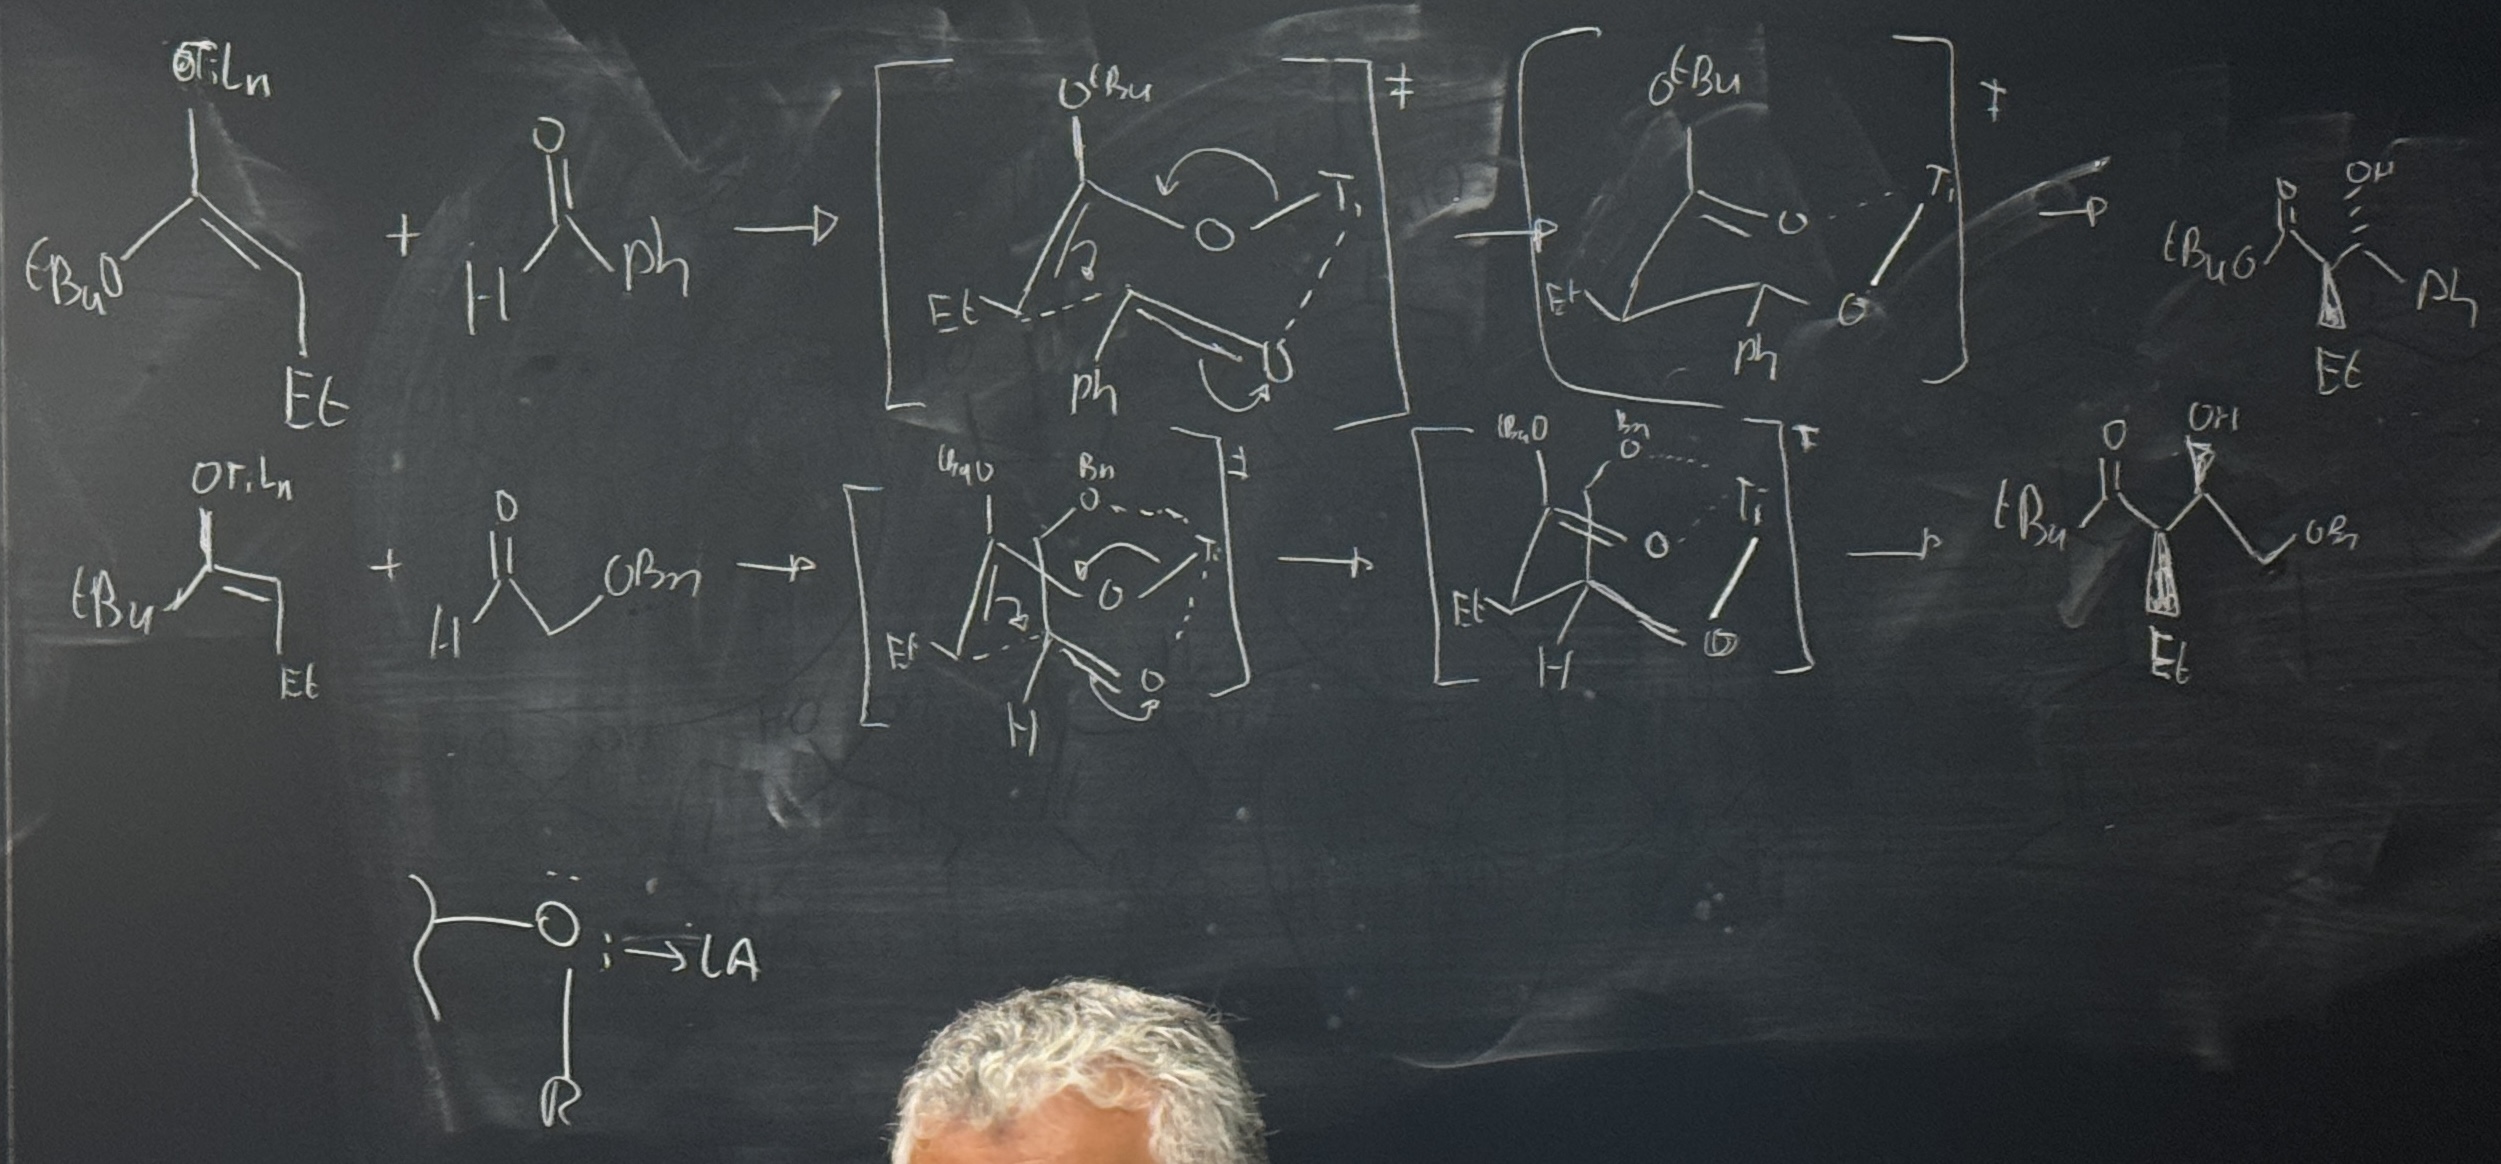 OTiLn
tBuO
Et
+
O
H
Ph
OtBu
O
Ti
Et
Ph
O
‡
OtBu
O
Ti
Et
Ph
O
‡
O
OH
tBuO
Ph
Et
OTiLn
tBu
Et
+
O
H
OBn
tBuO
Bn
O
Ti
O
Et
O
H
‡
tBuO
Bn
O
Ti
O
Et
O
H
‡
O
OH
tBu
OBn
Et
O: → LA
R